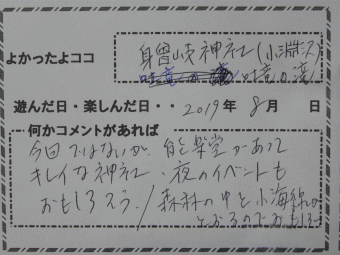 よかったよココ 身曾岐神社(小淵沢)
吐竜の滝
遊んだ日・楽しんだ日・・2019年 8月 日
何かコメントがあれば
今回ではないが、能楽堂があって
キレイな神社、夜のイベントも
おもしろそう!森林の中を小海線が